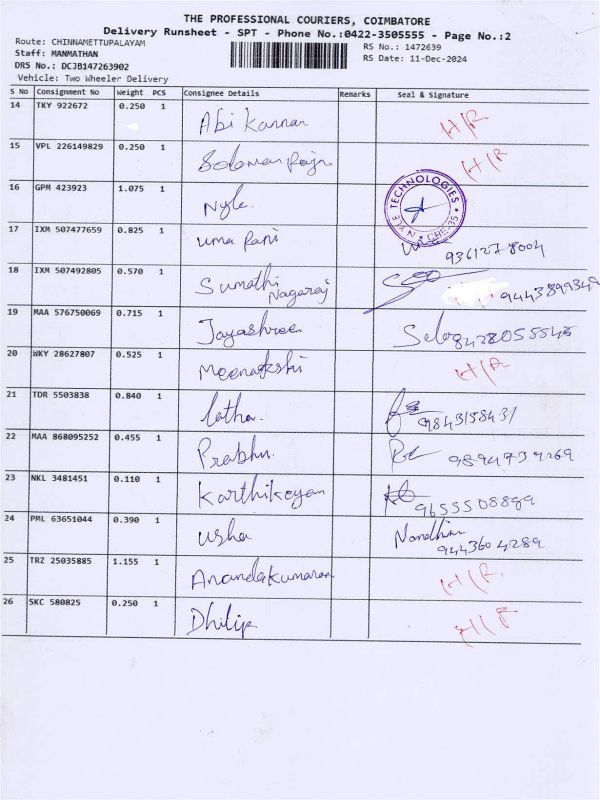 THE PROFESSIONAL COURIERS, COIMBATORE
Delivery Runsheet - SPT - Phone No.:0422-3505555 - Page No.:2
Route: CHINNAMETTUPALAYAM
RS No.: 1472639
Staff: MANMATHAN
RS Date: 11-Dec-2024
DRS No.: DCJB147263902
Vehicle: Two Wheeler Delivery
S No Consignment No Weight PCS Consignee Details Remarks Seal & Signature
14 TKY 922672 0.250 1 Abi Kannan H/R
15 VPL 226149829 0.250 1 Solomon Raja H/R
16 GPM 423923 1.075 1 Nyle. NYLE TECHNOLOGIES CBE-35
17 IXM 507477659 0.825 1 uma Rani 9361278004
18 IXM 507492805 0.570 1 Sumathi Nagaraj 9443899349
19 MAA 576750069 0.715 1 Jayashree 8428055545
20 WKY 28627807 0.525 1 Meenakshi H/R
21 TDR 5503838 0.840 1 Latha. 9843158431
22 MAA 868095252 0.455 1 Prabhu.
23 NKL 3481451 0.110 1 Karthikeyan 9655508889
24 PML 63651044 0.390 1 usha Nandhini 9443604289
25 TRZ 25035885 1.155 1 Anandakumaran H/R
26 SKC 580825 0.250 1 Dhilip H/R